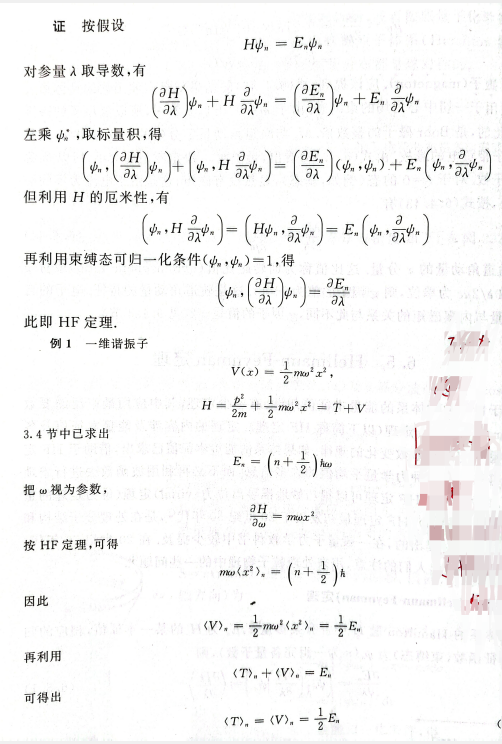 证 按假设
Hψₙ = Eₙψₙ
对参量 λ 取导数,有
(∂H/∂λ)ψₙ + H ∂/∂λ ψₙ = (∂Eₙ/∂λ)ψₙ + Eₙ ∂/∂λ ψₙ
左乘 ψₙ*,取标量积,得
(ψₙ,(∂H/∂λ)ψₙ)+(ψₙ,H ∂/∂λ ψₙ)=(∂Eₙ/∂λ)(ψₙ,ψₙ) + Eₙ(ψₙ,∂/∂λ ψₙ)
但利用 H 的厄米性,有
(ψₙ,H ∂/∂λ ψₙ)=(Hψₙ,∂/∂λ ψₙ)= Eₙ(ψₙ,∂/∂λ ψₙ)
再利用束缚态可归一化条件(ψₙ,ψₙ)=1,得
(ψₙ,(∂H/∂λ)ψₙ)=∂Eₙ/∂λ
此即 HF 定理.
例 1 一维谐振子
V(x) = 1/2 mω²x²,
H = p²/2m + 1/2 mω²x² = T+V
3.4 节中已求出
Eₙ = (n+1/2)ħω
把 ω 视为参数,
∂H/∂ω = mωx²
按 HF 定理,可得
mω⟨x²⟩ₙ = (n+1/2)ħ
因此
⟨V⟩ₙ = 1/2 mω²⟨x²⟩ₙ = 1/2 Eₙ
再利用
⟨T⟩ₙ + ⟨V⟩ₙ = Eₙ
可得出
⟨T⟩ₙ = ⟨V⟩ₙ = 1/2 Eₙ